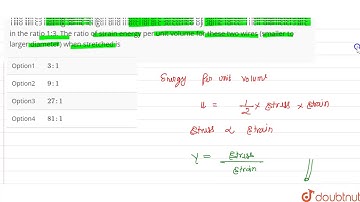 in the ratio 1:3. The ratio of strain energy per unit volume for these two wires (smaller to
larger diameter) when stretched is
Option1 3 : 1
Option2 9 : 1
Option3 27 : 1
Option4 81 : 1
Energy Per unit volume
u = 1/2 × Stress × Strain
Stress ∝ Strain
Y = Stress / Strain
doubtnut